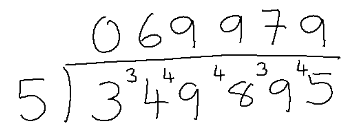 069979
5)3³4⁴9⁴8³9⁴5